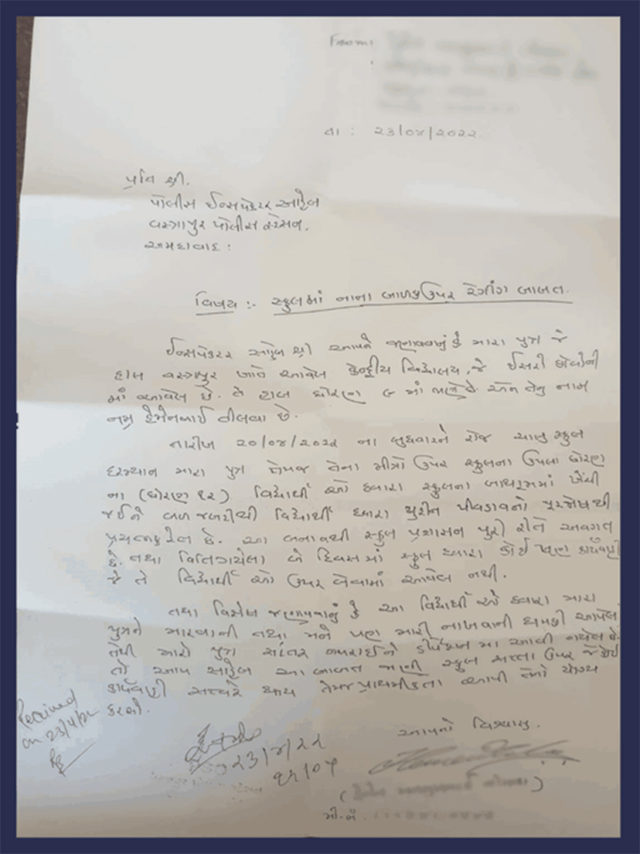 From:
તા : 23/04/2022
પ્રતિ શ્રી.
પોલીસ ઈન્સપેક્ટર સાહેબ
વસ્ત્રાપુર પોલીસ સ્ટેસન.
અમદાવાદ :
વિષય :- સ્કુલમાં નાના બાળકઉપર રેગીંગ બાબત.
ઈન્સપેકટર સાહેબ શ્રી આપને જણાવવાનું કે મારા પુત્ર જે
હાલ વસ્ત્રાપુર ખાતે આવેલ કેન્દ્રીય વિદ્યાલય, જે ઈસરો કોલોની
માં આવેલ છે. તે હાલ ધોરણ ૯ માં ભણે છે અને તેનું નામ
છે.
તારીખ ૨૦/૦૪/૨૦૨૨ ના બુધવારને રોજ ચાલુ સ્કુલ
દરમ્યાન મારા પુત્ર તેમજ તેના મીત્રો ઉપર સ્કુલના ઉપલા ધોરણ
ના (ધોરણ ૧૨) વિદ્યાર્થી ઓ દ્વારા સ્કુલના બાથરૂમમાં ખેંચી
જઈને બળજબરીથી વિદ્યાર્થી દ્વારા યુરીન પીવડાવવાનો
છે. આ બનાવથી સ્કુલ પ્રશાસન પુરી રીતે અવગત
છે. તથા વિતિગયેલા બે દિવસમાં સ્કુલ દ્વારા કોઈ પણ કાર્યવાહી
જે તે વિદ્યાર્થી ઓ ઉપર લેવામાં આવેલ નથી.
તથા વિશેષ જણાવવાનું કે આ વિદ્યાર્થી ઓ દ્વારા મારા
પુત્રને મારવાની તથા મને પણ મારી નાખવાની ધમકી આપેલ
તેથી મારો પુત્ર ગભરાઈને ડીપ્રેશન માં આવી ગયેલ છે.
તો આપ સાહેબ આ બાબત જાણી સ્કુલ સત્તા ઉપર
કાર્યવાહી સત્વરે થાય તેમજ પ્રાથમીકતા આપી યોગ્ય
કરશો.
Received
on 23/4/22
આપનો વિશ્વાસુ.
૨૩/૪/૨૨
૧૨/૦૫
મો.નં.